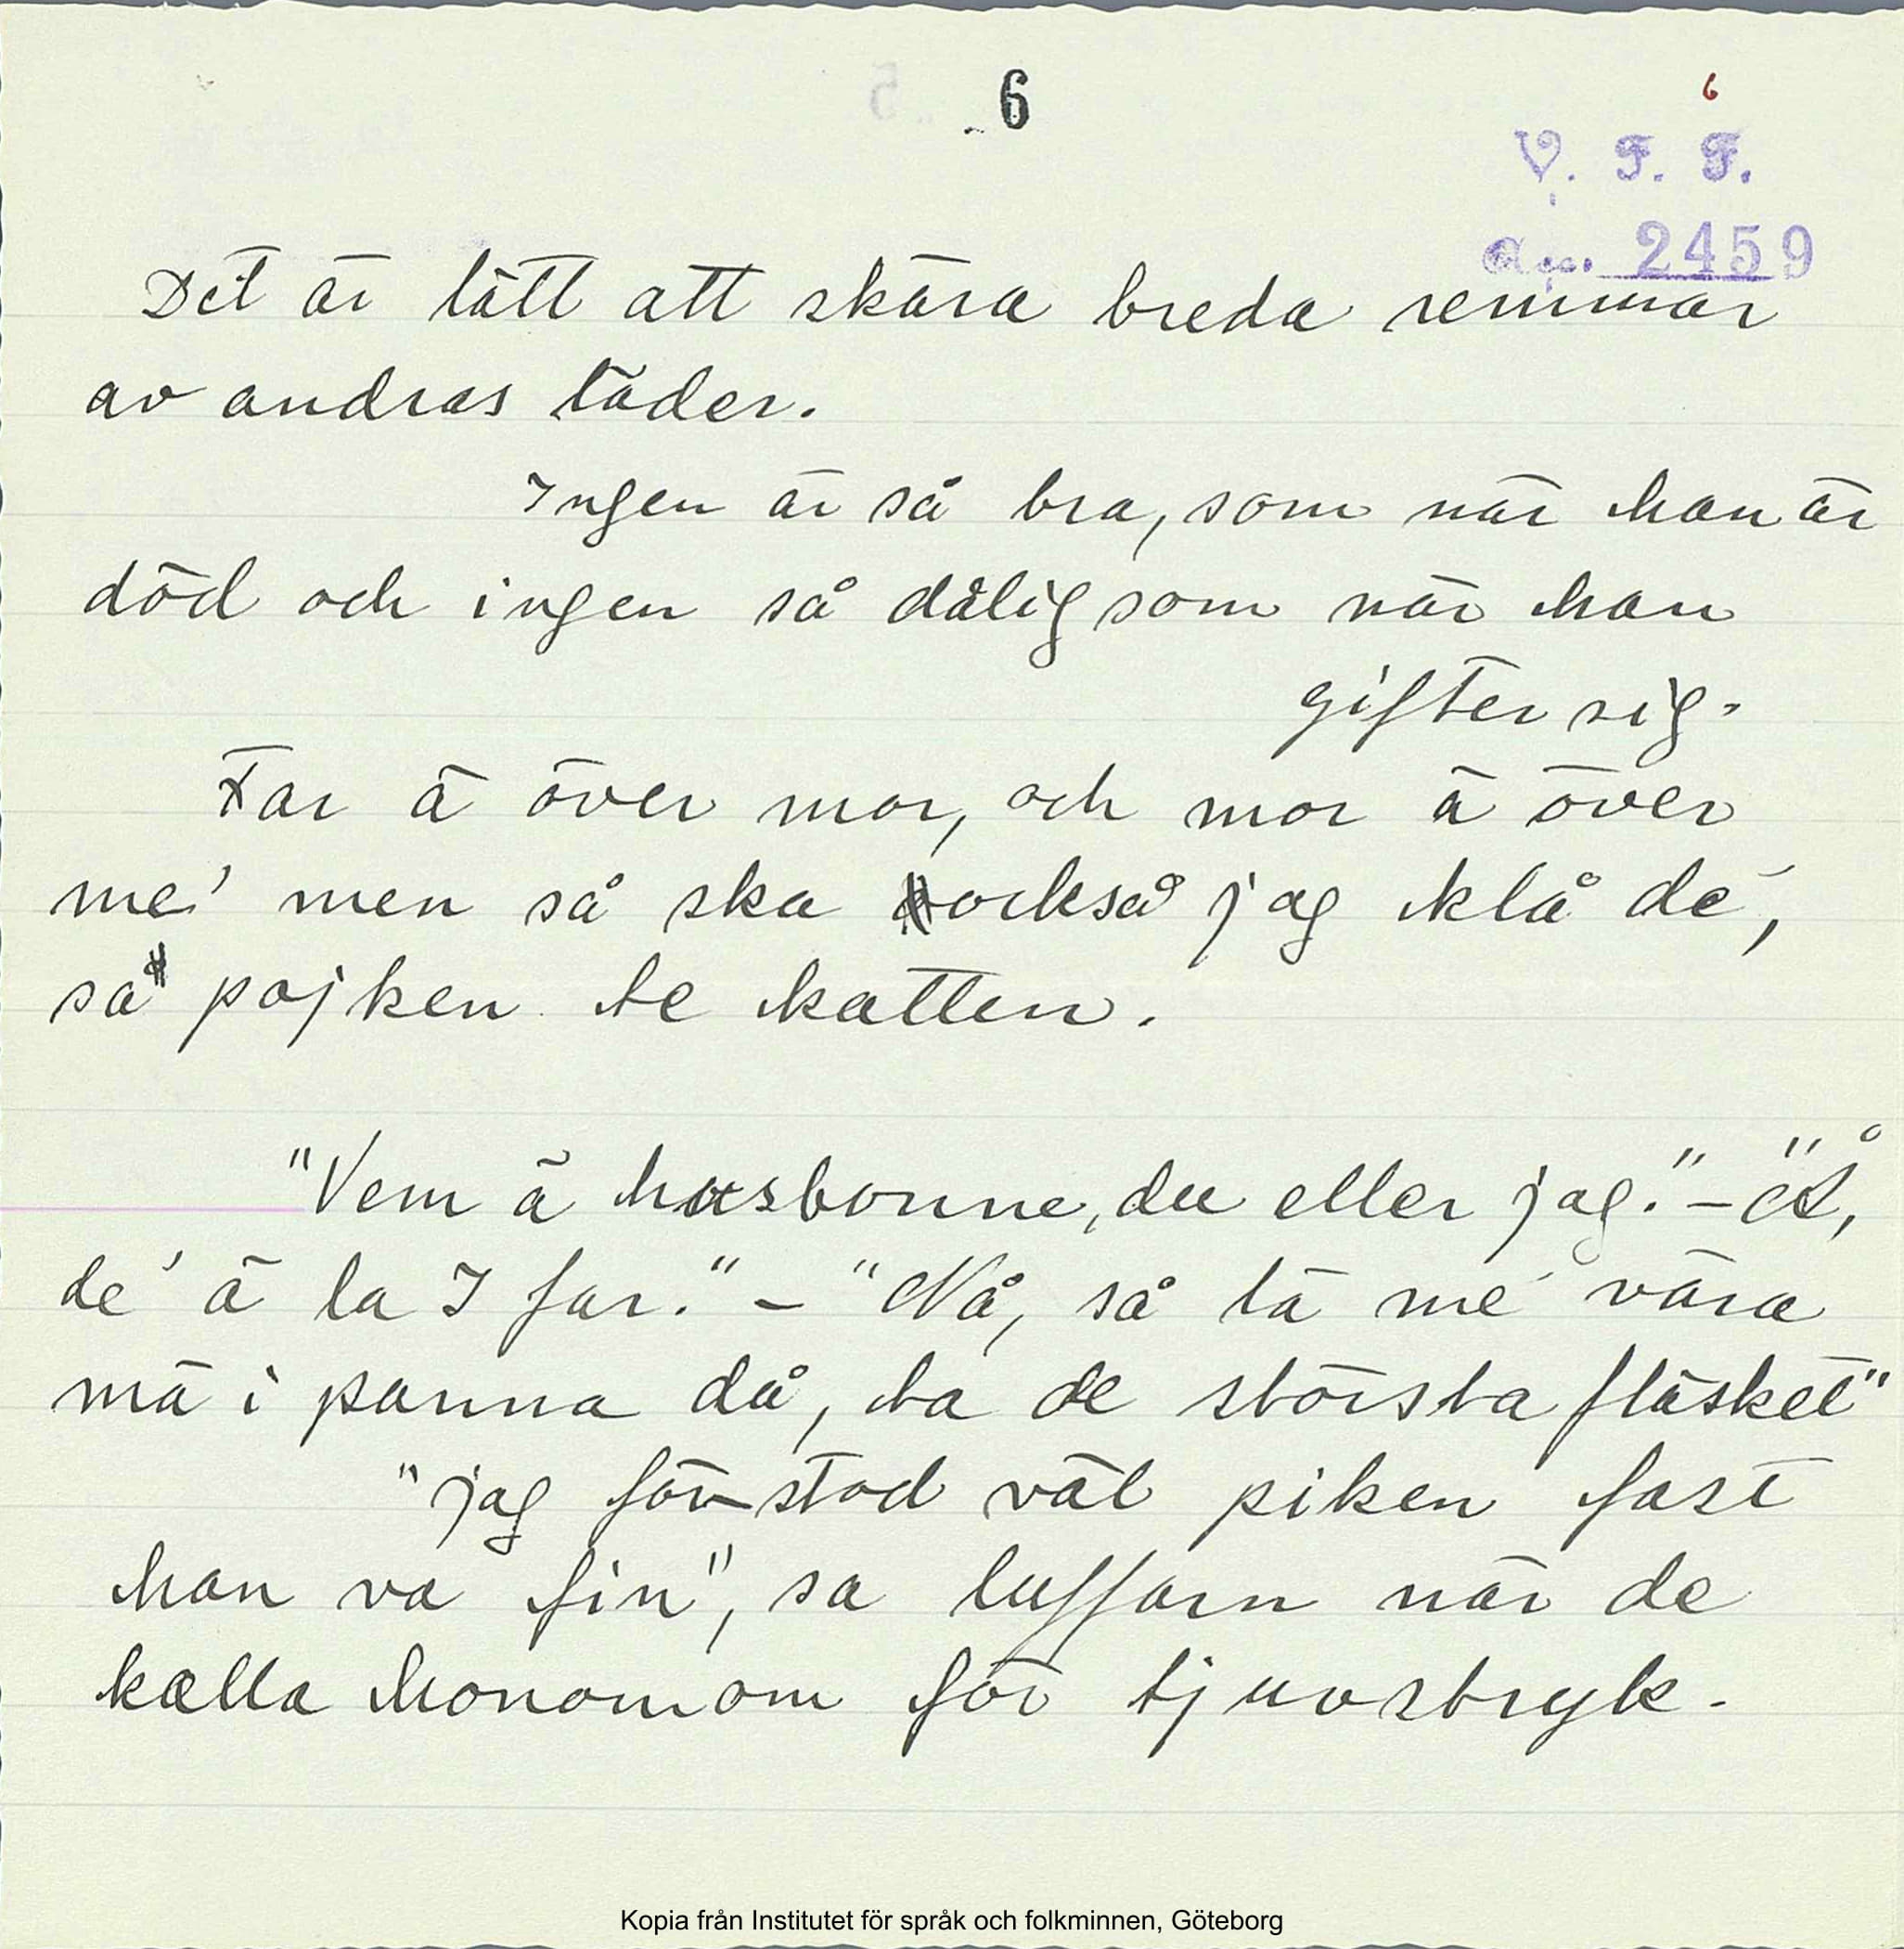 6
6
V. F. F.
Acc. 2459
Det är lätt att skära breda remmar
av andras läder.
Ingen är så bra, som när han är
död och ingen så dålig som när han
gifter sig.
Far ä över mor, och mor ä över
me' men så ska också jag klå dé,
sa pojken te katten.
"Vem ä husbonne, du eller jag." - "Å,
de' ä la I far." - "Nå, så lä mé vära
mä i panna då, ta de största fläsket"
"jag förstod väl piken fast
han va fin", sa luffarn när de
kalla honom om för tjuvstryk.
Kopia från Institutet för språk och folkminnen, Göteborg